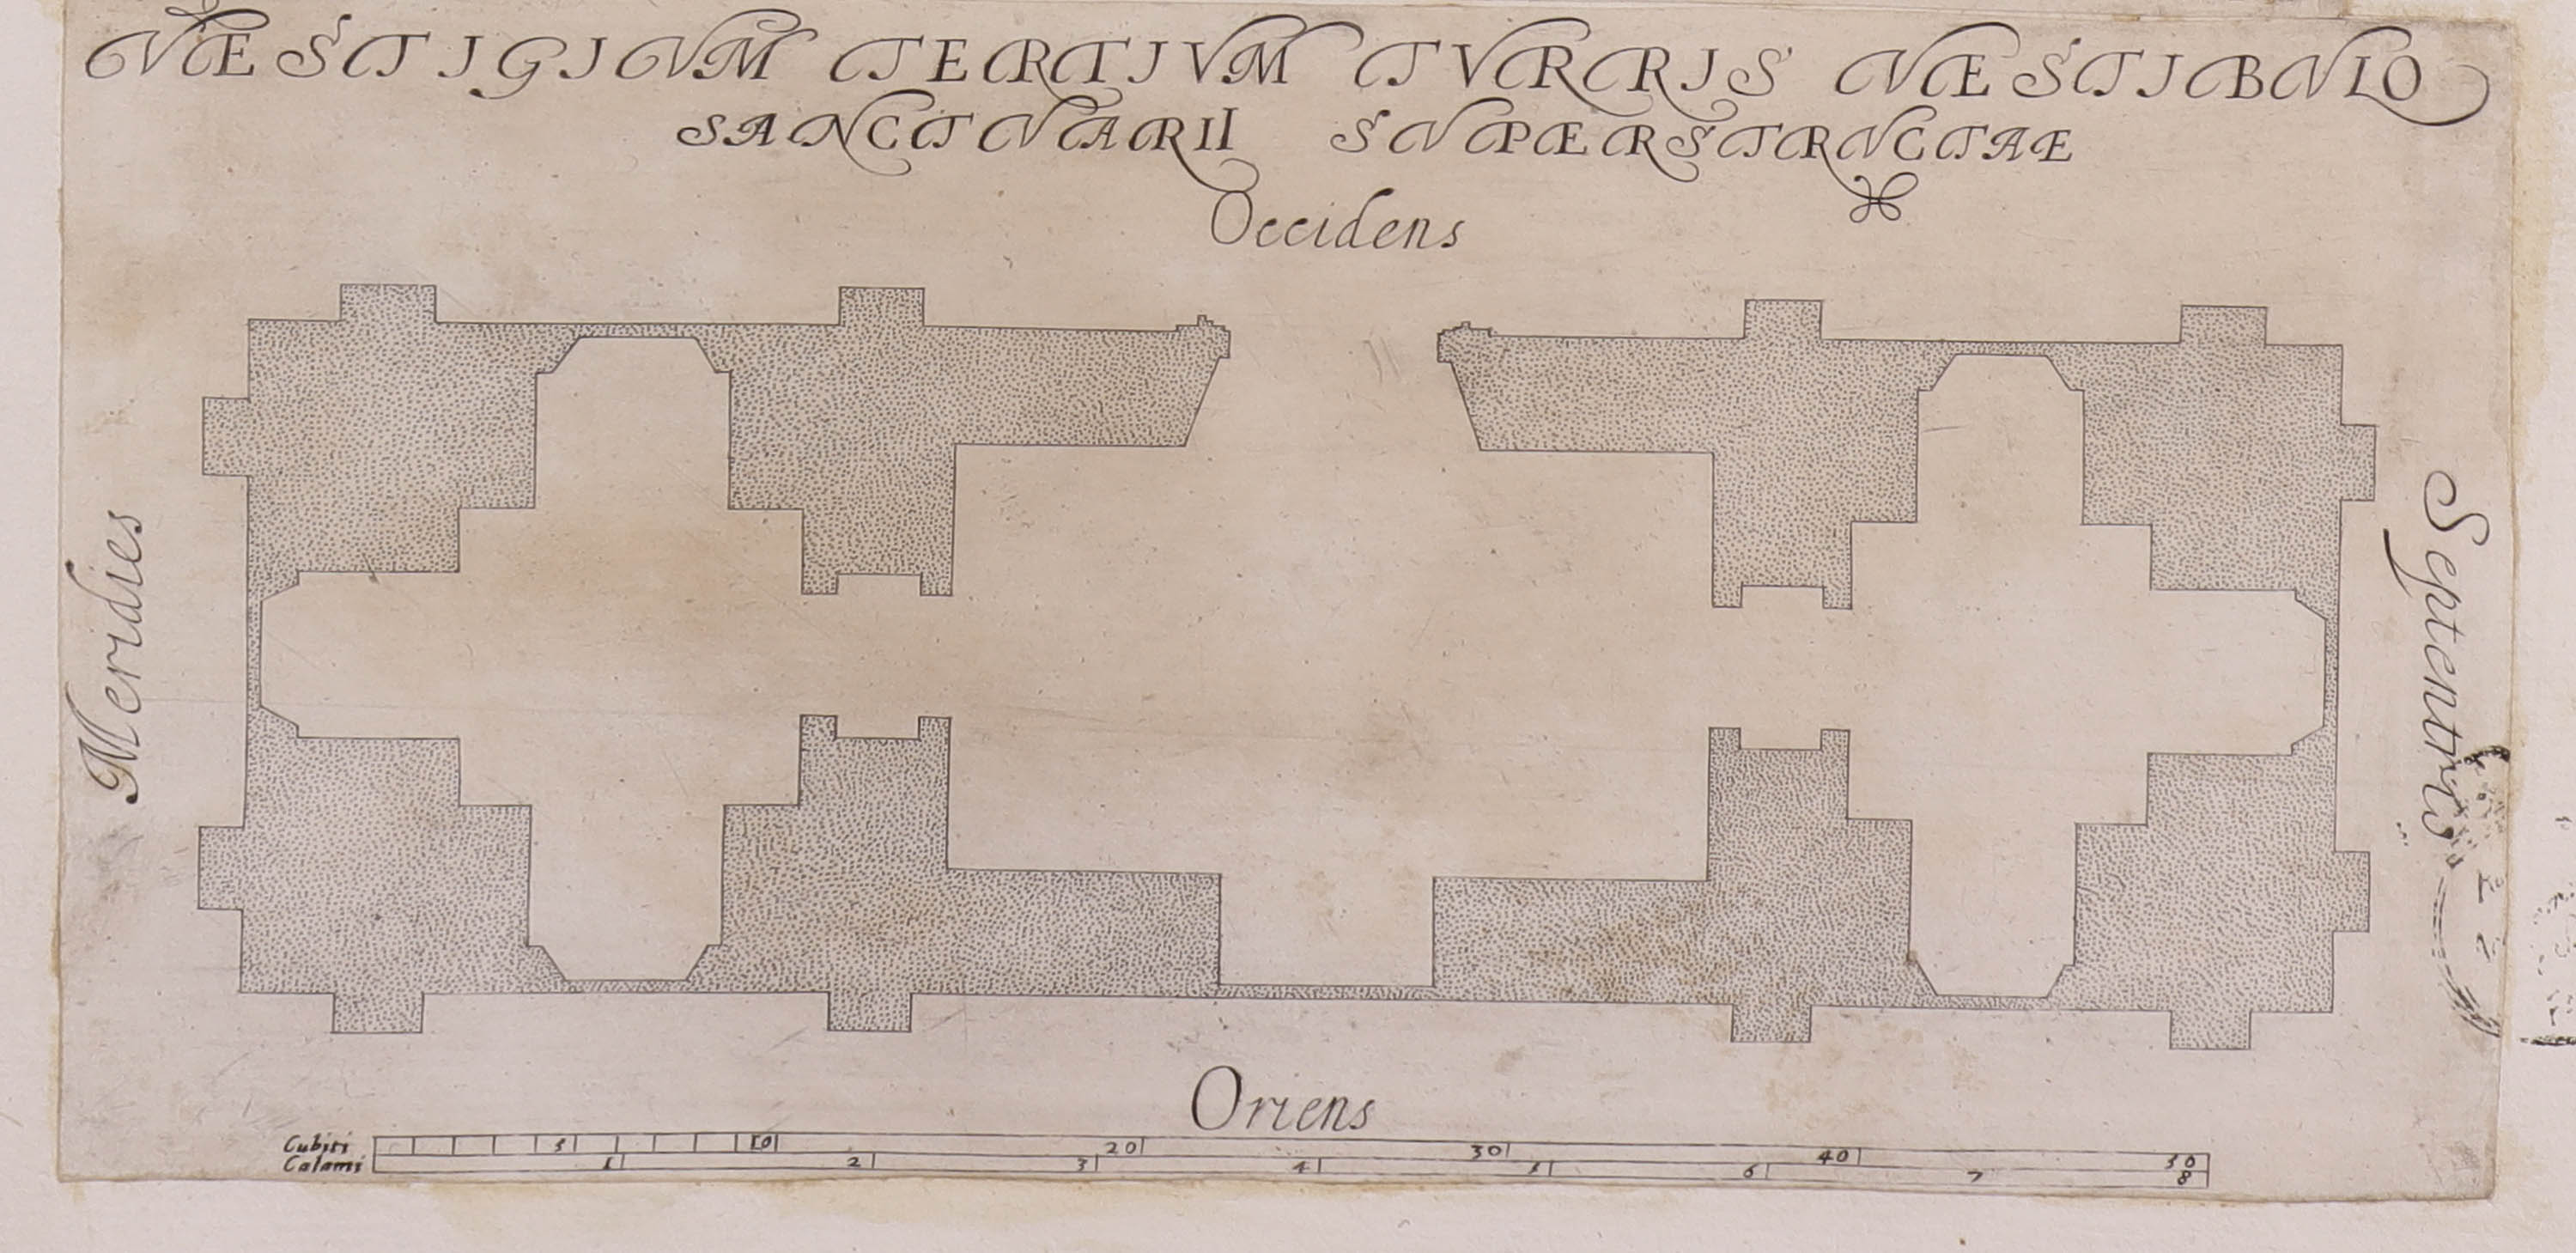 VESTIGIVM TERTIVM TVRRIS VESTIBVLO
SANCTVARII SVPERSTRVCTAE
Occidens
Meridies
Septentrio
Oriens
Cubiti 5 10 20 30 40 50
Calami 1 2 3 4 5 6 7 8